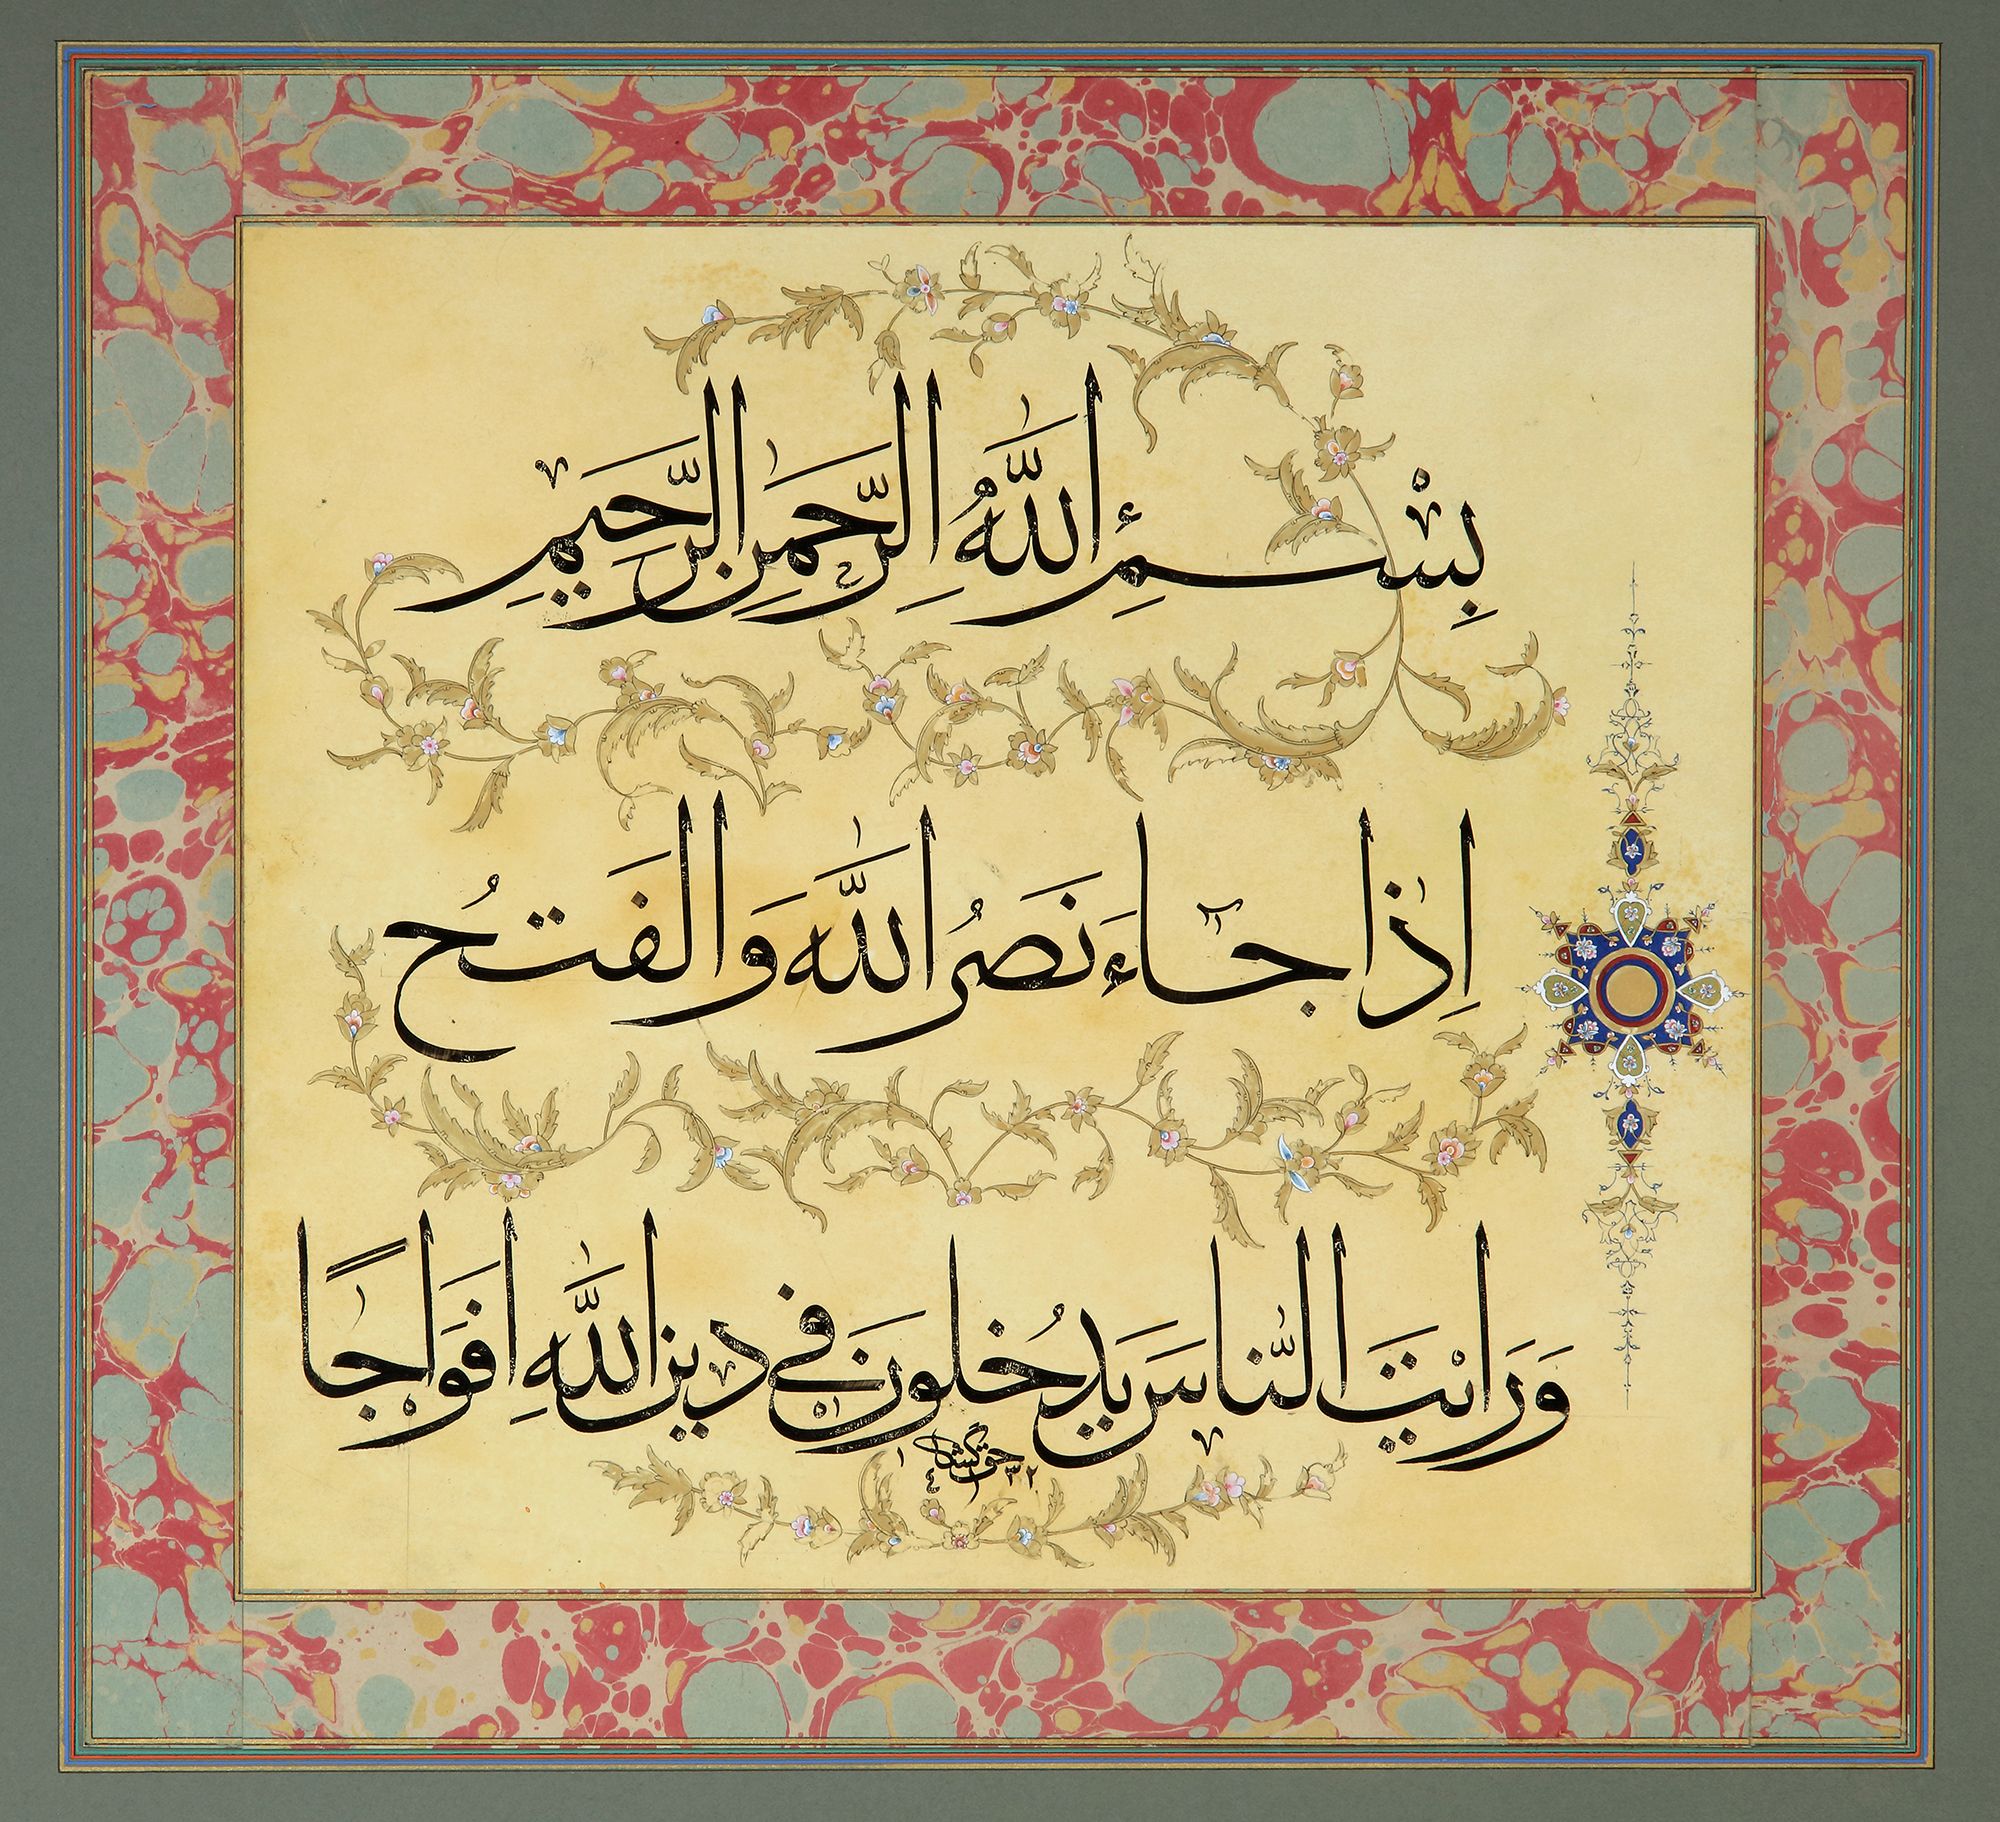 بِسْمِ اللَّهِ الرَّحْمَنِ الرَّحِيمِ
اِذَا جَآءَ نَصْرُ اللَّهِ وَالْفَتْحُ
وَرَاَيْتَ النَّاسَ يَدْخُلُونَ فِي دِينِ اللَّهِ اَفْوَاجًا